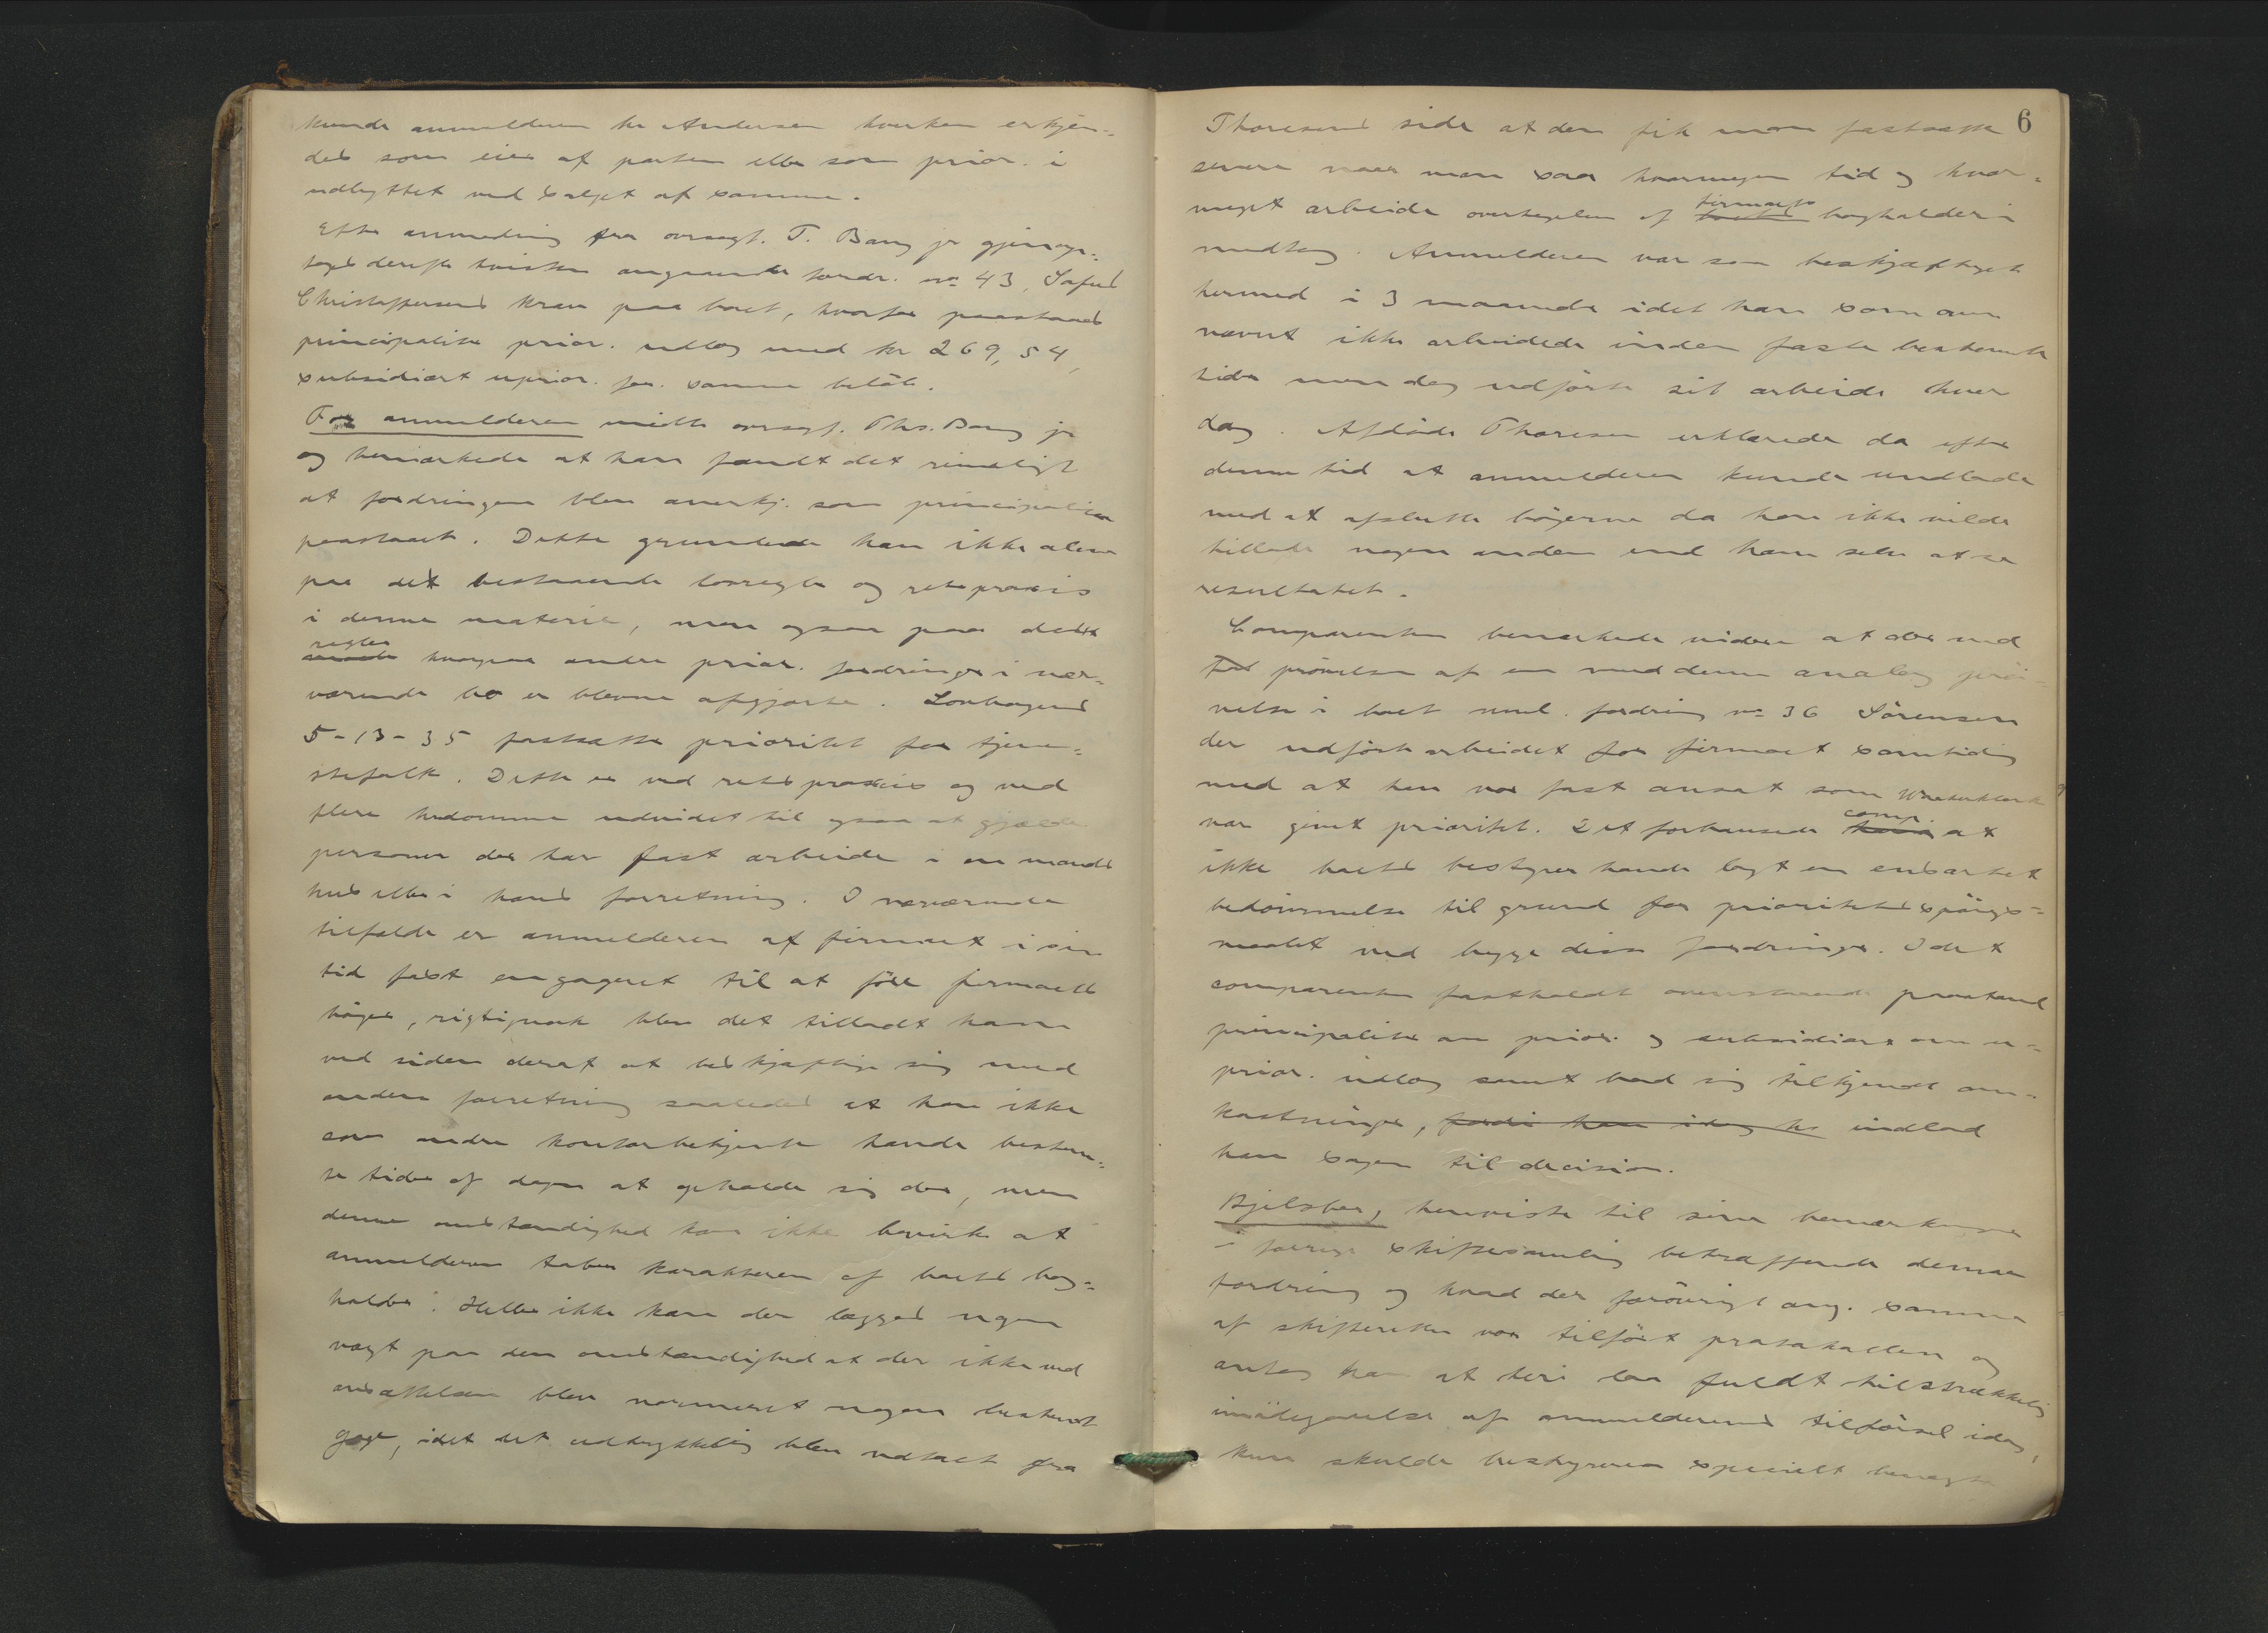 kunde anmelderen hr Andersen hverken erkjen-
des som eier af parten eller som prior. i
udbyttet ved salget af samme.
Efter anmodning fra overragf. T. Bang jr gjenop-
toges derefter tvisten angaaende fordr. no 43,
Christoffersens krav paa boet, hvorfor paastaaes
principaliter prior. udlæg med kr 269,54,
subsidiært uprior. for samme beløb.
For anmelderen mødte overragf. Ths. Bang jr
og bemærkede at han fandt det rimeligt
at fordringen blev anerkj. som principaliter
paastaaet. Dette grundede han ikke alene
paa det bestaaende lovregler og retspraxis
i denne materie, men ogsaa paa det
regler
hvorpaa andre prior. fordringer i nær-
værende bo er blevne afgjorte. Konkurslovens
5-13-35 fastsætte prioritet for tjene-
stefolk. Dette er ved retspraxis og ved
flere hrdomme udvidet til ogsaa at gjælde
personer der har fast arbeide i en mands
hus eller i hans forretning. I nærværende
tilfælde er anmelderen af firmaet i sin
tid fast engageret til at føre firmaets
bøger, rigtignok blev det tilladt ham
ved siden deraf at beskjæftige sig med
anden forretning saaledes at han ikke
som andre kontorbetjente havde bestem-
te tider af dagen at opholde sig der, men
denne omstændighed kan ikke bevirke at
anmelderen taber karakteren af boets bog-
holder. Heller ikke kan der lægges nogen
vægt paa den omstændighed at der ikke ved
ansættelsen blev normeret nogen bestemt
gage, idet det udtrykkelig blev udtalt fra
6
Thoresens side at den fik man fastsætte
senere naar man saa hvormegen tid og hvor-
meget arbeide overtagelsen af
firmaets
boets bogholderi
medtog. Anmelderen var saa beskjæftiget
hermed i 3 maaneder idet han som oven
nævnt ikke arbeidede inden faste bestemte
tider men dog udførte sit arbeide hver
dag. Afdøde Thoresen erklærede da efter
denne tid at anmelderen kunde undlade
med at afslutte bøgerne da han ikke vilde
tillade nogen anden end ham selv at se
resultatet.
Comparenten bemærkede videre at der ved
prøvelsen af en med denne analog prø-
velse i boet nml. fordring no 36 Sørensen
der udførte arbeidet for firmaet samtidig
med at han var fast ansat som
var givet prioritet. Det forbausede
comp.
ham at
ikke boets bestyrer havde lagt en ensartet
bedømmelse til grund for prioritetsspørgs-
maalet ved begge disse fordringer. Idet
comparenten fastholdt ovenstaaende paastand
principaliter om prior. og subsidiært om u-
prior. udlæg samt bad sig tilkjendt om-
kostninger, fordi han idag hr indlod
han sagen til decision.
henviste til sine bemærkninger
i forrige skiftesamling betræffende denne
fordring og hvad der forøvrigt ang. samme
af skifteretten var tilført protokollen og
antog han at heri laa fuldt tilstrækkelig
imødegaaelse af anmelderens tilførsel idag,
kun skulde bestyreren specielt benegte